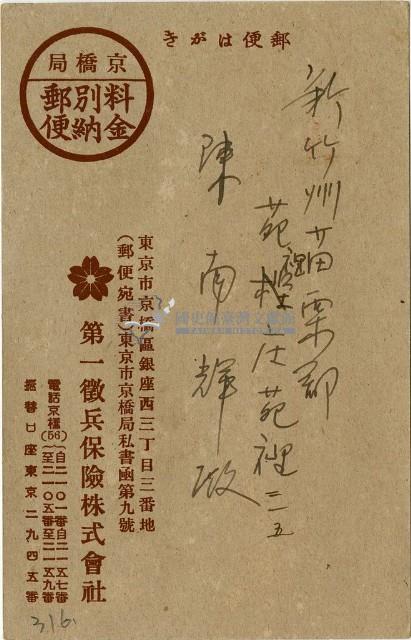 郵便はがき
京橋局
料金別納郵便
新竹州苗栗郡
苑裡庄苑裡二五
陳南輝殿
東京市京橋區銀座西三丁目三番地
(郵便宛書)東京市京橋局私書凾第九號
第一徵兵保險株式會社
電話京橋(56)自二一〇一番至二一〇五番自二一五七番至二一五九番
振替口座東京二九四五番
國史館臺灣文獻館
TAIWAN HISTORICA
316.